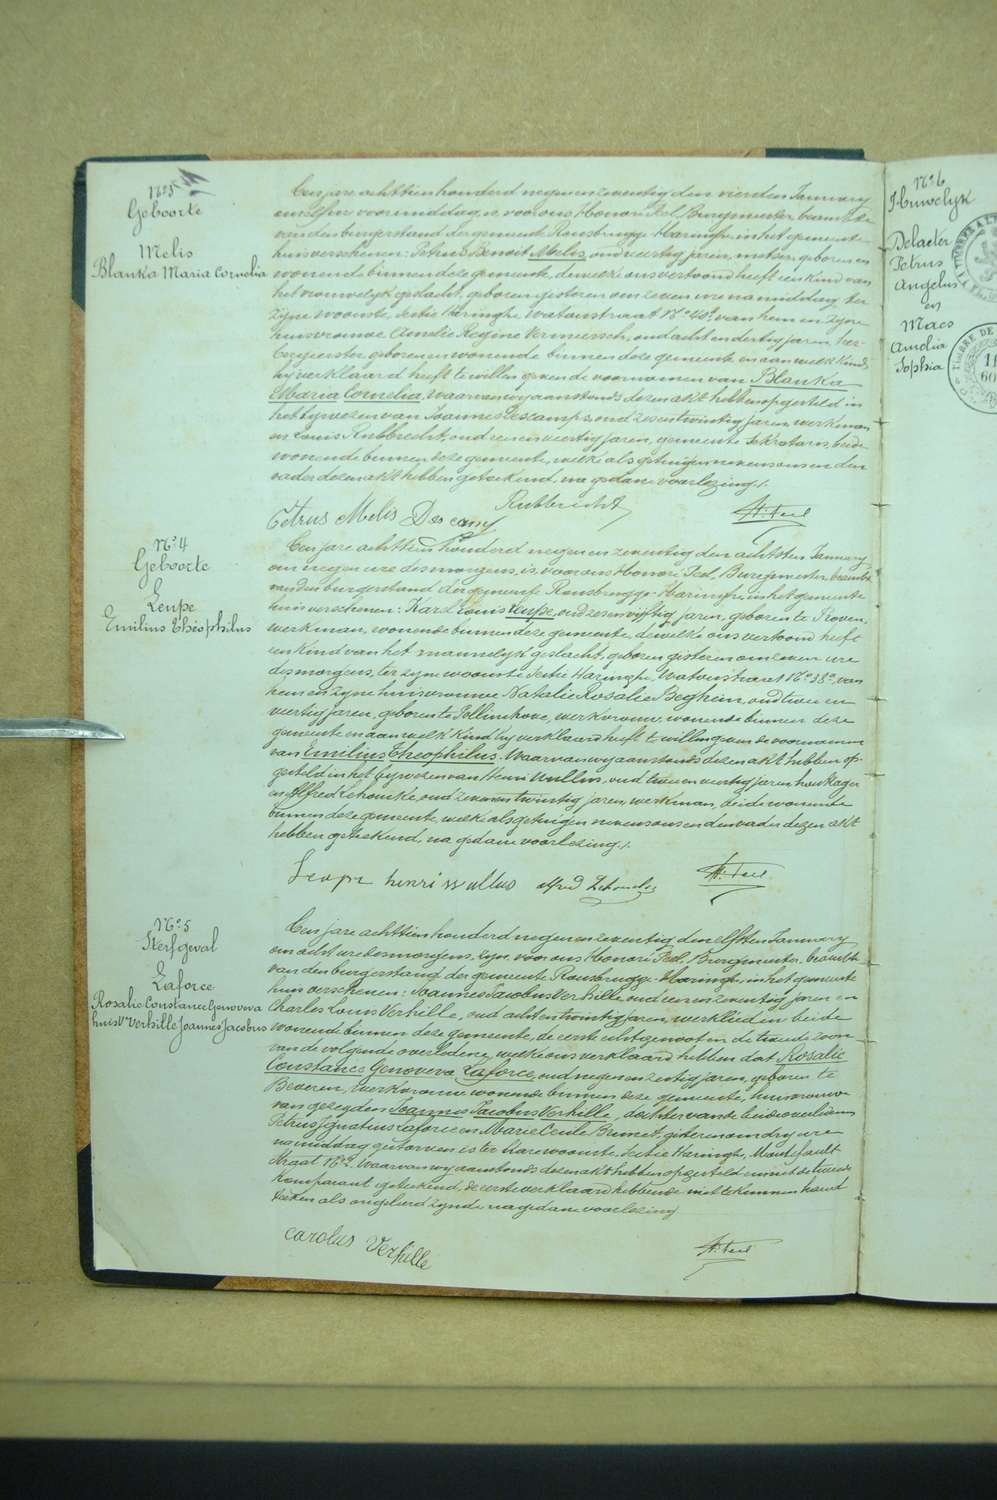 N° 3
Geboorte
Melis
Blanka Maria Cornelia
Een jare achttien honderd negen en zeventig den vierden January
ten elf ure voormiddag, is, voor ons Honoré Feel, Burgmeester, beambte
van den burgerstand der gemeente Rousbrugge-Haringhe, in het gemeente-
huis verschenen: Petrus Benoit Melis, oud veertig jaren, metser, geboren en
wonende binnen deze gemeente, dewelke ons vertoond heeft een kind van
het vrouwelyk geslacht, geboren gisteren om zeven ure namiddag ter
zyne wooste, sectie Haringhe, Watoustraat N° 40, van hem en zyne
huisvrouwe Amelie Regine Vermeersch, oud acht en dertig jaren,
geboren en wonende binnen deze gemeente en aan welk kind
hy verklaard heeft te willen geven de voornamen van Blanka
Maria Cornelia, Waarvan wy aanstonds dezen akt hebben opgesteld in
het bywezen van Joannes Descamps, oud zes en twintig jaren, werkman
en Louis Rubbrecht, oud een en veertig jaren, gemeente Sekretaris, beide
wonende binnen deze gemeente, welke als getuigen nevens ons en den
vader dezen akt hebben geteekend, na gedane voorlezing ./.
Petrus Melis Descamp Rubbrecht H. Feel
N° 4
Geboorte
Leupe
Emilius Theophilus
Een jare achttien honderd negen en zeventig den achtsten January
om negen ure des morgens, is, voor ons Honoré Feel, Burgmeester, beambte
van den burgerstand der gemeente Rousbrugge-Haringhe, in het gemeente
huis verschenen: Karel Louis Leupe, oud zes en vyftig jaren, geboren te Proven,
werkman, wonende binnen deze gemeente, dewelke ons vertoond heeft
een kind van het mannelyk geslacht, geboren gisteren om zeven ure
des morgens, ter zyne wooste sectie Haringhe, Watoustraat N° 38, van
hem en zyne huisvrouwe Natalie Rosalie Beghein, oud twee en
veertig jaren, geboren te Pollinchove, werkvrouwe, wonende binnen deze
gemeente en aan welk kind hy verklaard heeft te willen geven de voornamen
van Emilius Theophilus. Waarvan wy aanstonds dezen akt hebben op-
gesteld in het bywezen van Henri Wullus, oud twee en veertig jaren,
en Alfred Lehoucke, oud zeven en twintig jaren, werkman, beide wonende
binnen deze gemeente, welke als getuigen nevens ons en den vader dezen akt
hebben geteekend, na gedane voorlezing ./.
Leupe henri wullus alfred Lehoucke H. Feel
N° 5
Sterfgeval
Laforce
Rosalie Constance Genoveva
huisv. Verhille Joannes Jacobus
Een jare achttien honderd negen en zeventig den elfsten January
om acht ure des morgens, zyn, voor ons Honoré Feel, Burgmeester, beambte
van den burgerstand der gemeente Rousbrugge-Haringhe, in het gemeente
huis verschenen: Joannes Jacobus Verhille oud een en zeventig jaren en
Charles Louis Verhille, oud acht en twintig jaren, werklieden beide
wonende binnen deze gemeente, de eerste echtgenoot en de tweede zoon
van de volgende overledene, welke ons verklaard hebben dat Rosalie
Constance Genoveva Laforce, oud negen en zestig jaren, geboren te
Beveren, werkvrouwe wonende binnen deze gemeente, huisvrouw
van gezegden Joannes Jacobus Verhille, dochter van de beide overledene
Petrus Ignatius Laforce en Marie Cecile Bumet, gisteren om dry ure
namiddag gestorven is ter hare wooste, sectie Haringhe,
straat N° 2. Waarvan wy aanstonds dezen akt hebben opgesteld en met de tweede
komparant geteekend, de eerste verklaard hebbende niet te kunnen hand
teeken als ongeleerd zynde na gedane voorlezing
carolus Verhille H. Feel
N° 6
Huwelyk
Delaeter
Petrus
Angelus
en
Maes
Amelia
Sophia